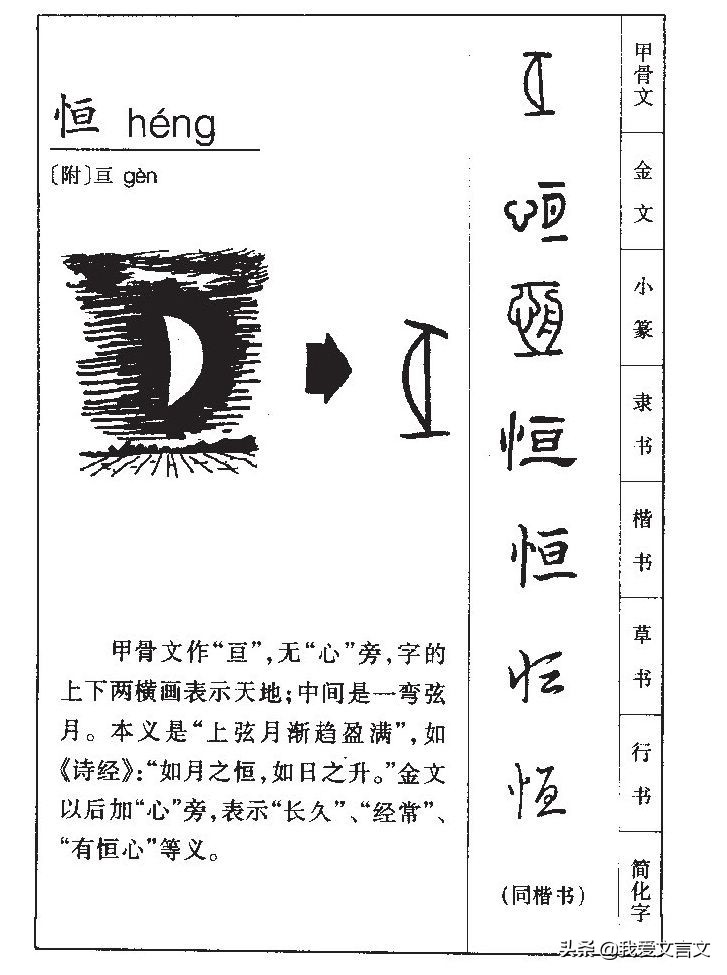 恒 héng
〔附〕亘 gèn
甲骨文作“亘”,无“心”旁,字的
上下两横画表示天地;中间是一弯弦
月。本义是“上弦月渐趋盈满”,如
《诗经》:“如月之恒,如日之升。”金文
以后加“心”旁,表示“长久”、“经常”、
“有恒心”等义。
亘 甲骨文
恒 金文
恒 小篆
恒 隶书
恒 楷书
恒 草书
恒 行书
(同楷书) 简化字
头条 @我爱文言文